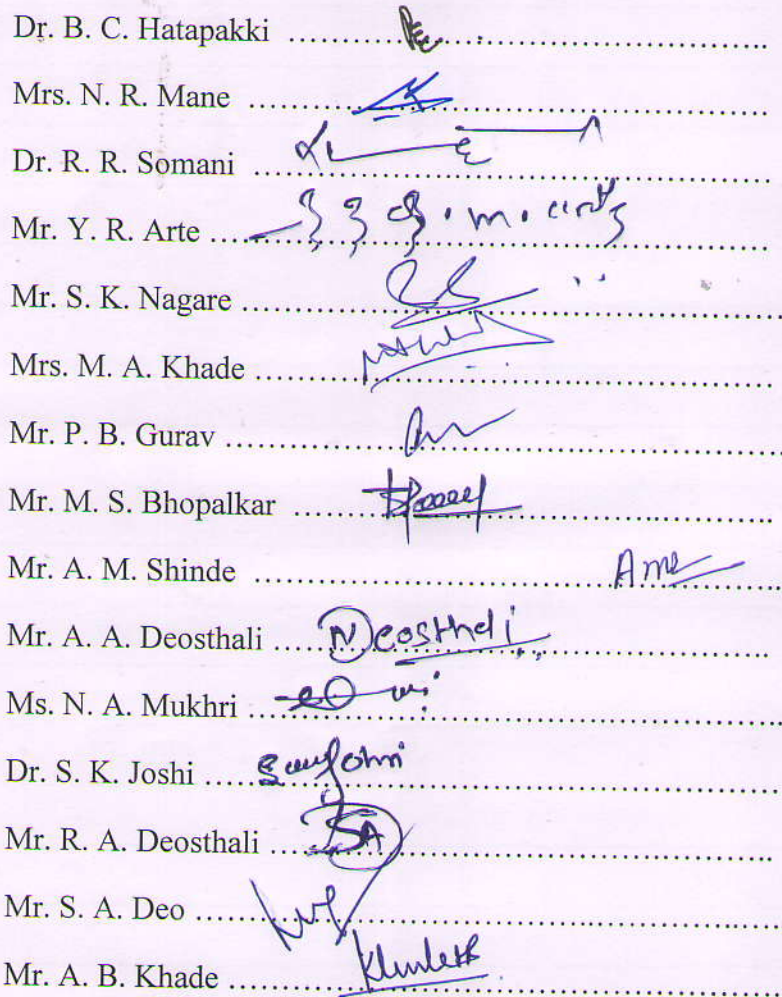 Dr. B. C. Hatapakki ........................................
Mrs. N. R. Mane ........................................
Dr. R. R. Somani ........................................
Mr. Y. R. Arte ........................................
Mr. S. K. Nagare ........................................
Mrs. M. A. Khade ........................................
Mr. P. B. Gurav ........................................
Mr. M. S. Bhopalkar ........................................
Mr. A. M. Shinde ........................................
Mr. A. A. Deosthali ........................................ Deosthali
Ms. N. A. Mukhri ........................................
Dr. S. K. Joshi ........................................
Mr. R. A. Deosthali ........................................
Mr. S. A. Deo ........................................
Mr. A. B. Khade ........................................